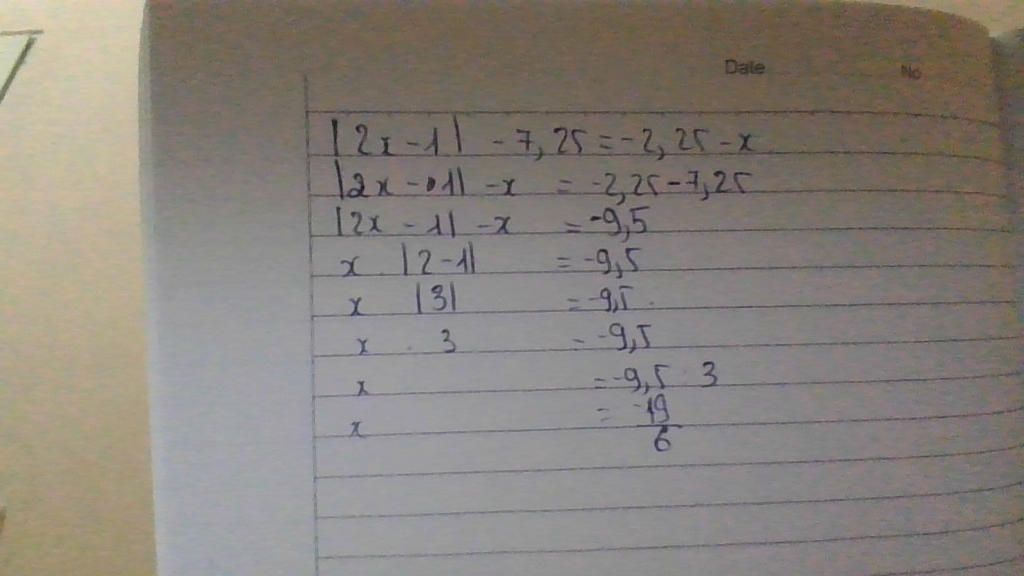 Date No
|2x-1| -7,25=-2,25-x
|2x-1| -x = -2,25-7,25
|2x-1| -x =-9,5
x |2-1| =-9,5
x |3| =-9,5.
x . 3 =-9,5
x =-9,5 3
x = -19/6